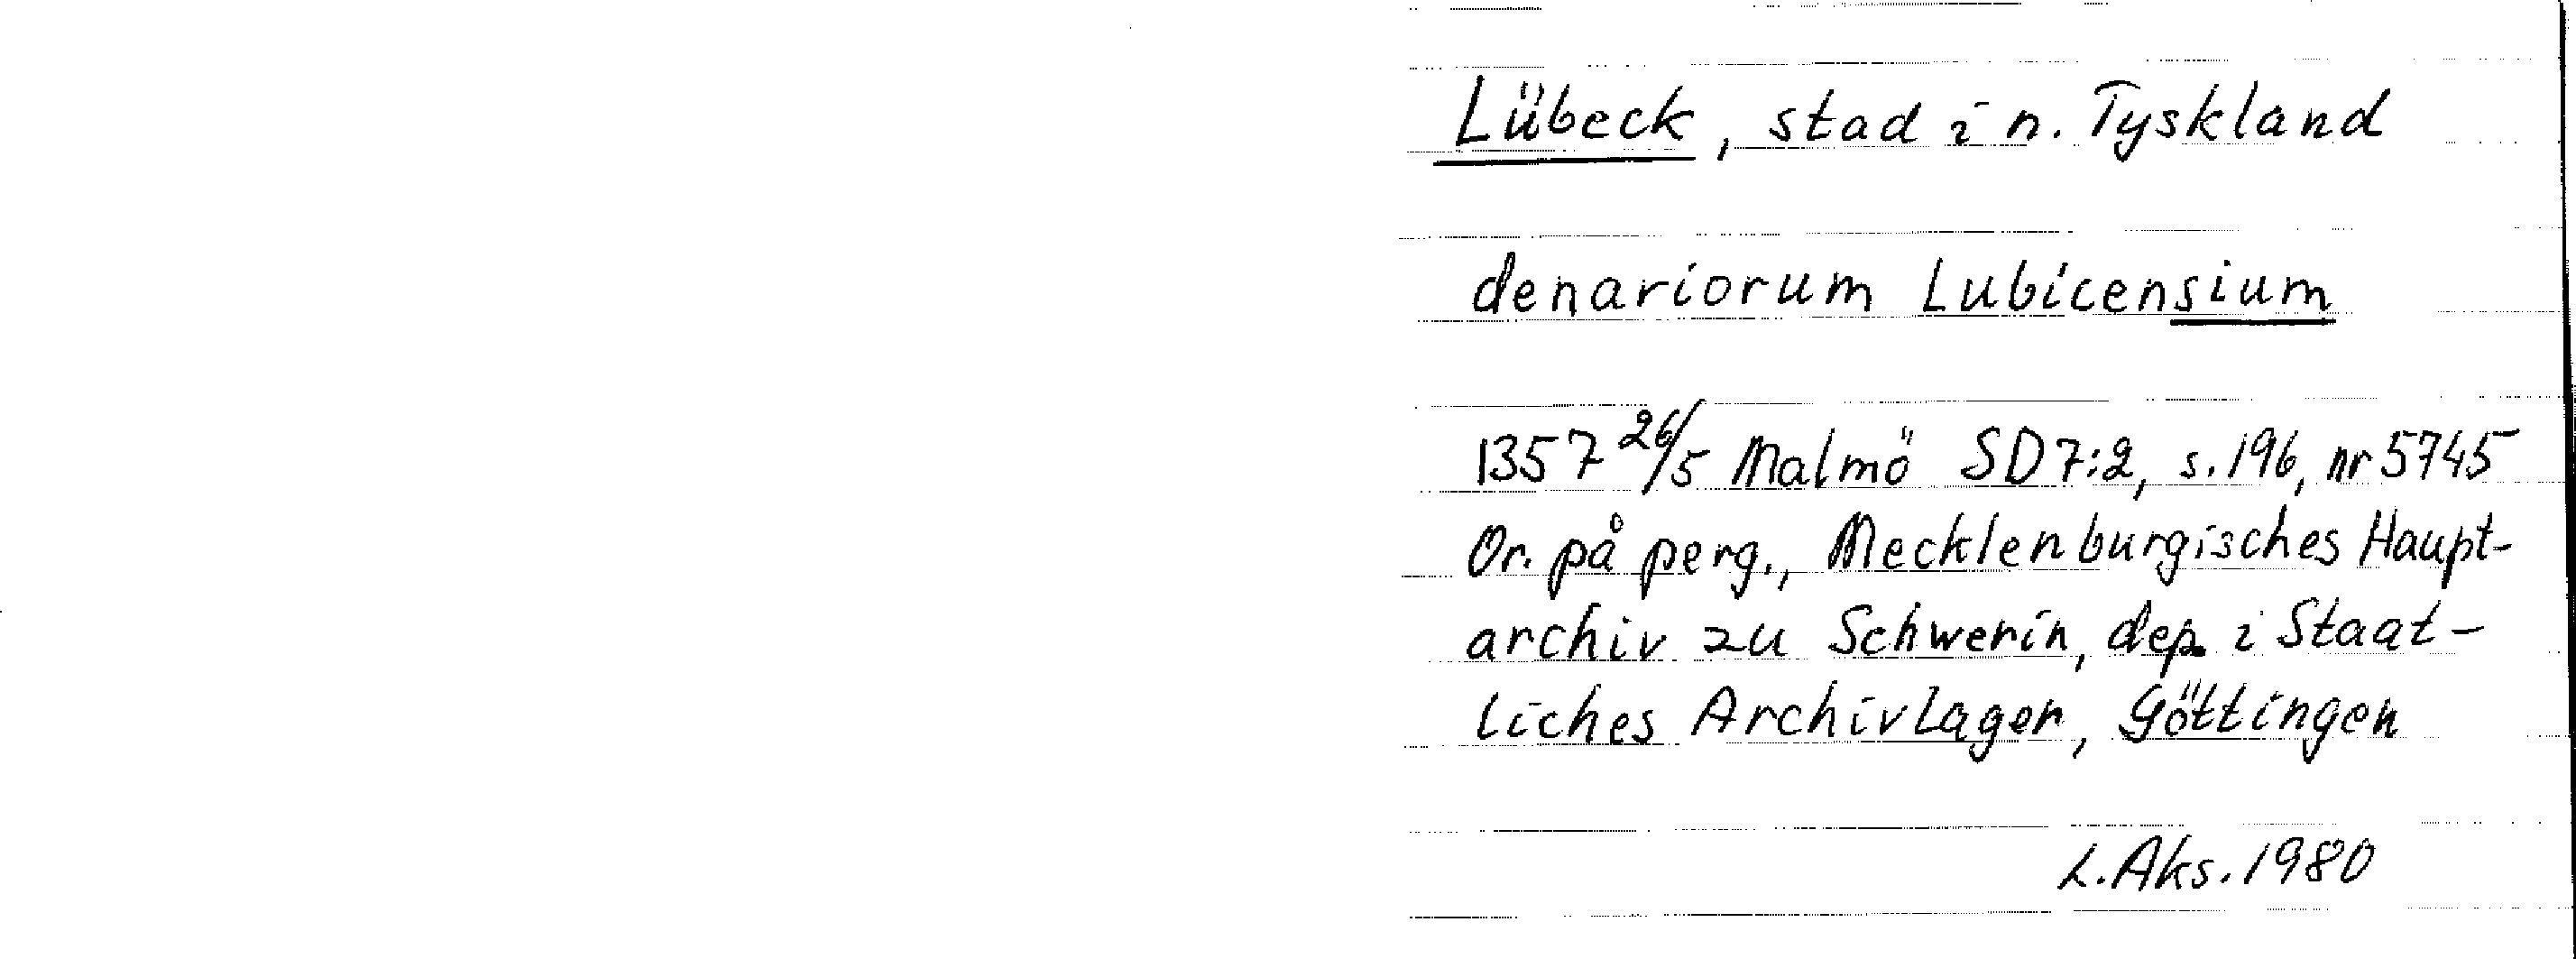 Lübeck, stad i n. Tyskland
denariorum Lubicensium
1357 26/5 Malmö SD 7:2, s. 196, nr 5745
Or. på perg., Mecklenburgisches Haupt-
archiv zu Schwerin, dep. i Staat-
liches Archivlager, Göttingen
L. Aks. 1980